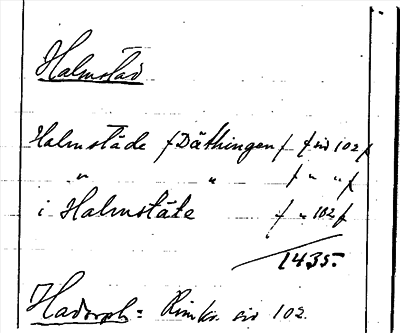 Halmstad
Halmstäde f Däthingen f f sid 102 f
" " f " " f
i Halmstäte f " 102 f
1435.
Hadorph: Rimkr. sid 102.